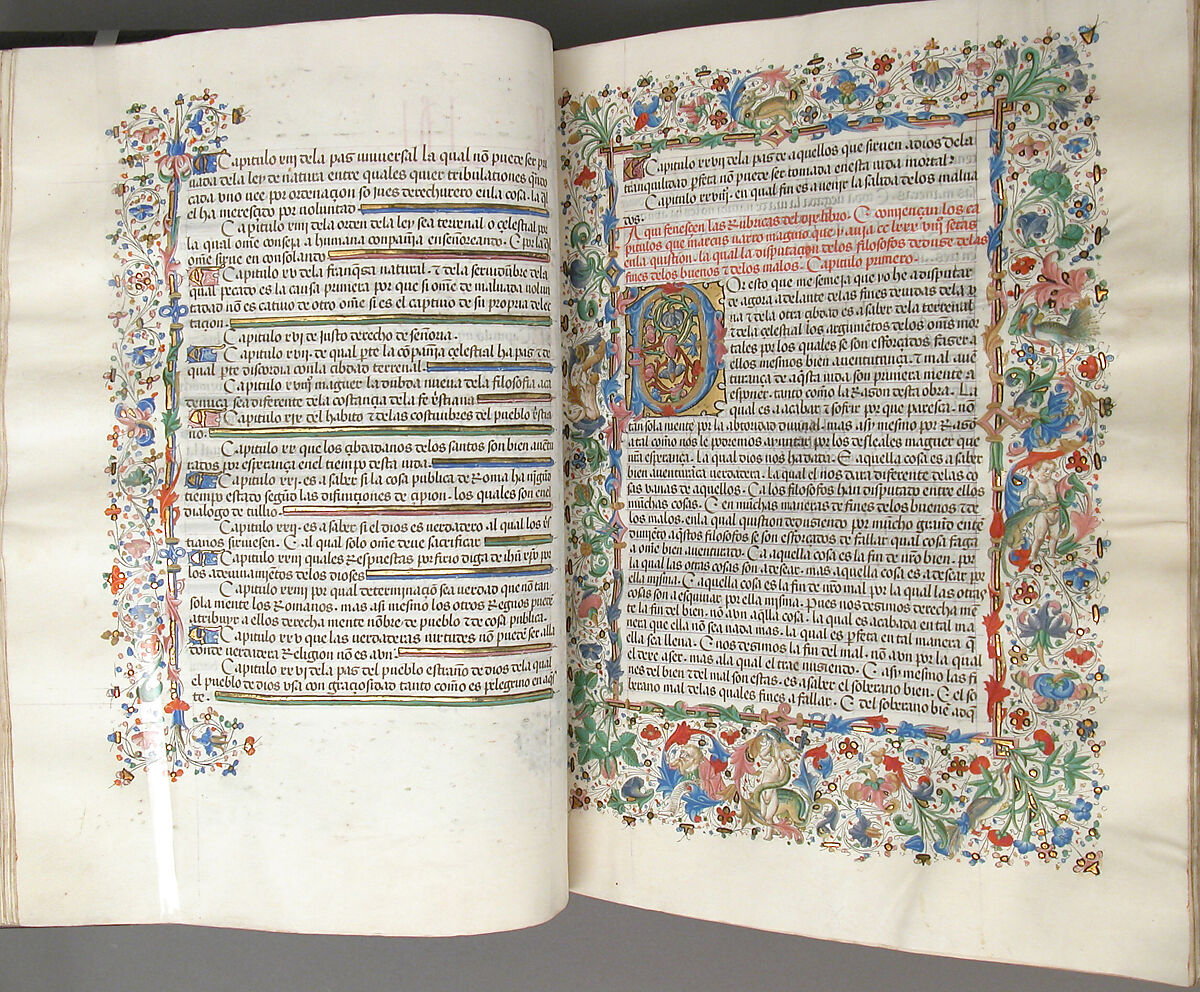 Capitulo xiij dela paz vniuersal la qual nō puede ser pri
uada dela ley de natura entre quales quier tribulationes
cada vno viee por ordenaçion so jues derechurero enla cosa. la q̄
el ha meresçido por voluntad
Capitulo xiiij dela orden dela ley sea terrenal o çelestial por
la qual om̄e conseja a humana compañja enseñoreando. E por la q̄l
om̄e sirue en consolando
Capitulo xv dela franq̄sa natural. ⁊ dela seruidūbre dela
qual pecado es la causa primera por que si om̄e de maluada volun
tad non es catiuo de otro om̄e si es el captiuo de su propria delec
taçion.
Capitulo xvi de justo derecho de señoria.
Capitulo xvij. de qual pr̄te la cōpañja çelestial ha paz ⁊ de
qual pr̄te discordia con la çibdad terrenal.
Capitulo xviij maguer la dubda nueua dela filosofia aca
demica sea diferente dela costança dela fe xp̄istiana
Capitulo xix del habito ⁊ delas costunbres del pueblo xp̄istia
no.
Capitulo xx que los çibdadanos delos santos son bien auen
tados por esperança enel tienpo desta vida.
Capitulo xxj. es a saber si la cosa publica de Roma ha njgūn
tienpo estado segūn las difinitiones de çipion. los quales son enel
dialogo de tullio.
Capitulo xxij. es a saber si el dios es verdadero. al qual los
tianos siruiesen. E al qual solo om̄e deue sacrificar
Capitulo xxiij quales Respuestas porfirio diga de ih̄u xp̄o por
los adeuinamjētos delos dioses
Capitulo xxiiij por qual determinaçio sea verdad que nō tan
sola mente los Romanos. mas asi mesmo los otros Regnos puede
atribuyr a ellos derecha mente nōbre de pueblo ⁊ de cosa publica.
Capitulo xxv que las verdaderas virtudes nō puedē ser alla
donde verdadera Religion nō es avn.
Capitulo xxvi dela paz del pueblo estraño de dios dela qual
el pueblo de dios vsa con graçiosidad tanto como es pelegrino en aq̄s
te.
Capitulo xxvij dela paz de aquellos que siruen a dios dela
tranquilidad perfeta nō puede ser tomada enesta vida mortal.
Capitulo xxviij. en qual fin es a uenjr la salida delos malua
dos.
Aqui fenesçen las Rubricas del libro. E comjençan los ca
pitulos que marcus varro magino que
enla quistion. la qual la disputaçion delos filosofos deduse delas
fines delos buenos ⁊ delos malos. Capitulo primero.
Or esto que me semeja que yo he a disputar
de agora adelante delas fines deuidas dela vr̄a
na ⁊ dela otra çibdad es a saber dela terrenal
⁊ dela celestial los argumētos delos om̄s mor
tales por los quales se son esforçados faser a
ellos mesmos bien auenturança. ⁊ mal auē
turança de aq̄sta vida son primera mente a
esponer. tanto como la Rason desta obra. La
qual es a acabar ⁊ sofrir por que paresca. nō
tan sola mente por la abtoridad diuinal. mas asy mesmo por Rasō
atal como nos le podremos ayuntar por los desleales maguer que
nr̄a esperança. la qual dios nos ha dada. E aquella cosa es a saber
bien auenturāça verdadera. la qual el nos dara diferente delas co
sas vanas de aquellos. Ca los filosofos han disputado entre ellos
muchas cosas. E en muchas maneras de fines delos buenos ⁊ de
los malos. enla qual quistion deduisiendo por mucho grand ente
dimjēto aq̄stos filosofos se son esforçados de fallar qual cosa faga
a om̄e bien auenturado. Ca aquella cosa es la fin de nr̄o bien. por
la qual las otras cosas son a desear. mas aquella cosa es a desear por
ella misma. E aquella cosa es la fin de nr̄o mal por la qual las otras
cosas son a esquiuar por ella misma. Pues nos desimos derecha mē
te la fin del bien. nō avn aq̄lla cosa. la qual es acabada en tal ma
nera que ella nō sea nada mas. la qual es perfeta en tal manera q̄
ella sea llena. E nos desimos la fin del mal. nō avn por la qual
el dexe a ser. mas ala qual el trae nusiendo. E asi mesmo las fi
nes del bien ⁊ del mal son estas. es a saber el soberano bien. E el so
berano mal delas quales fines a fallar. E del soberano biē adq̄